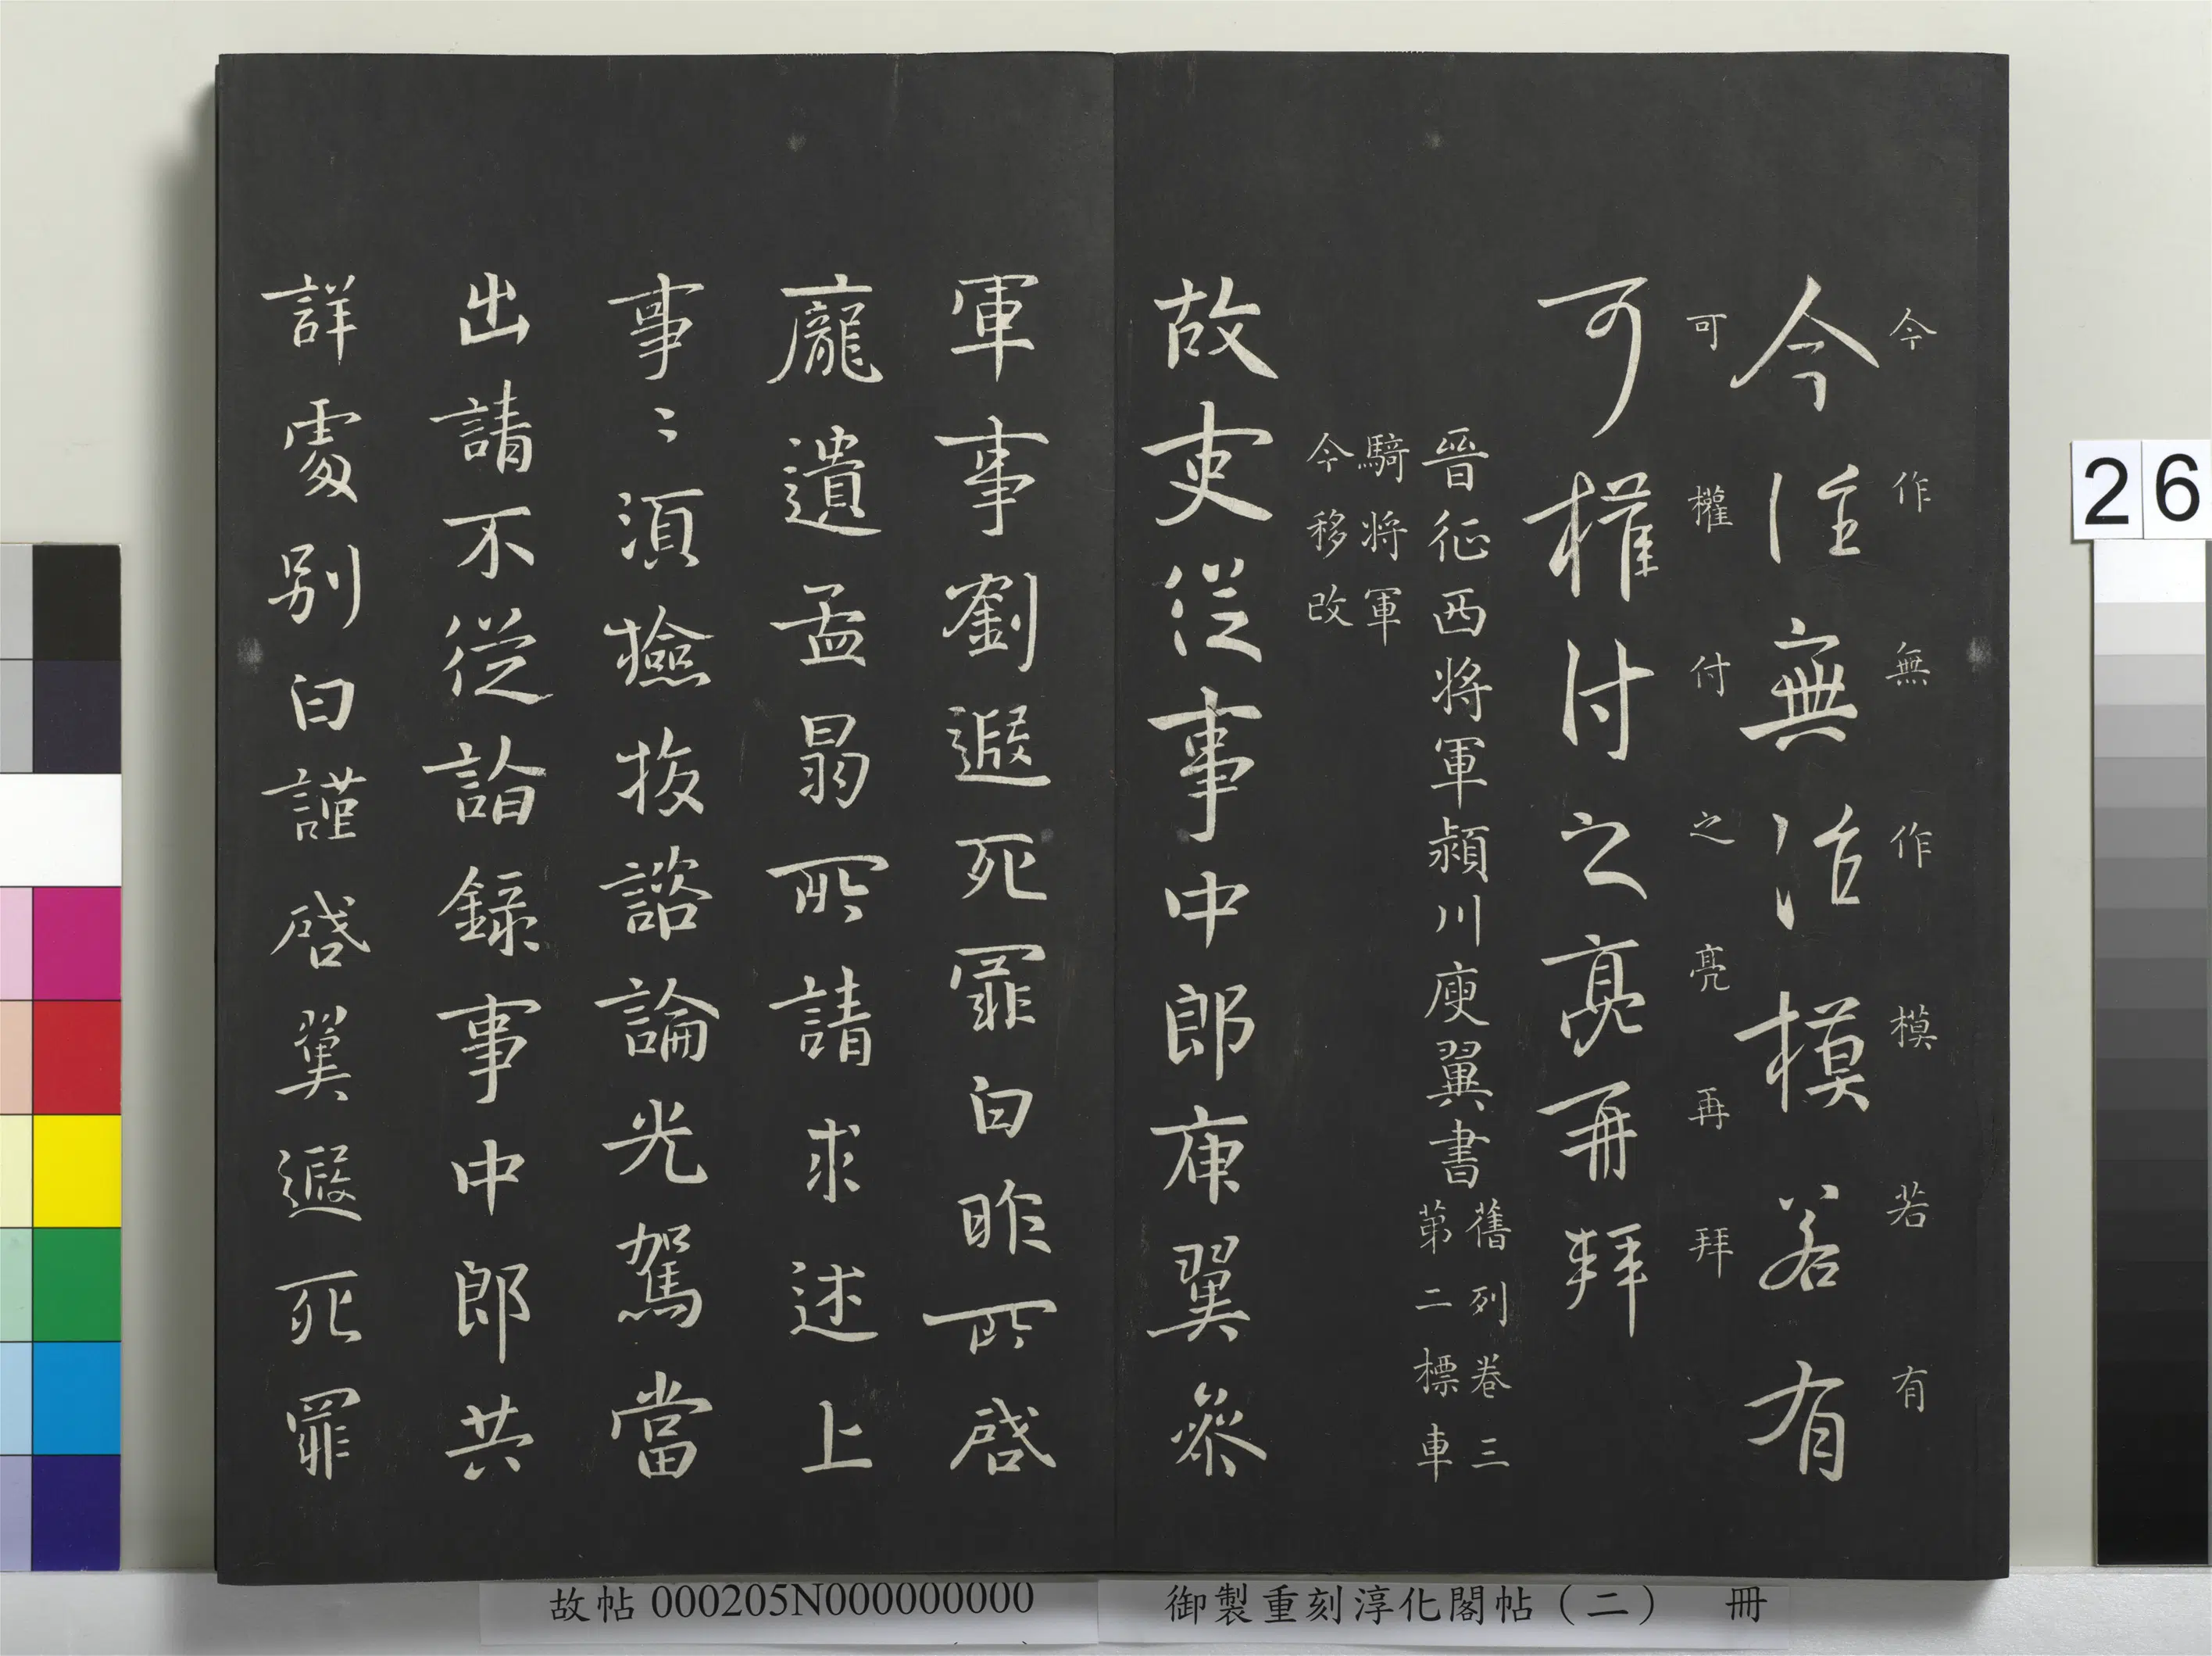 今作無作模若有
今作無作模若有
可權付之亮再拜
可權付之亮再拜
晉征西將軍潁川庾翼書
舊列卷三
第二標車
騎將軍
今移改
故吏從事中郎庾翼參
軍事劉遐死罪白昨所啓
龐遺孟昺所請求述上
事〻須撿挍諮論光駕當
出請不從詣錄事中郎共
詳處別白謹啓翼遐死罪
26
御製重刻淳化閣帖（二） 冊
故帖 000205N000000000